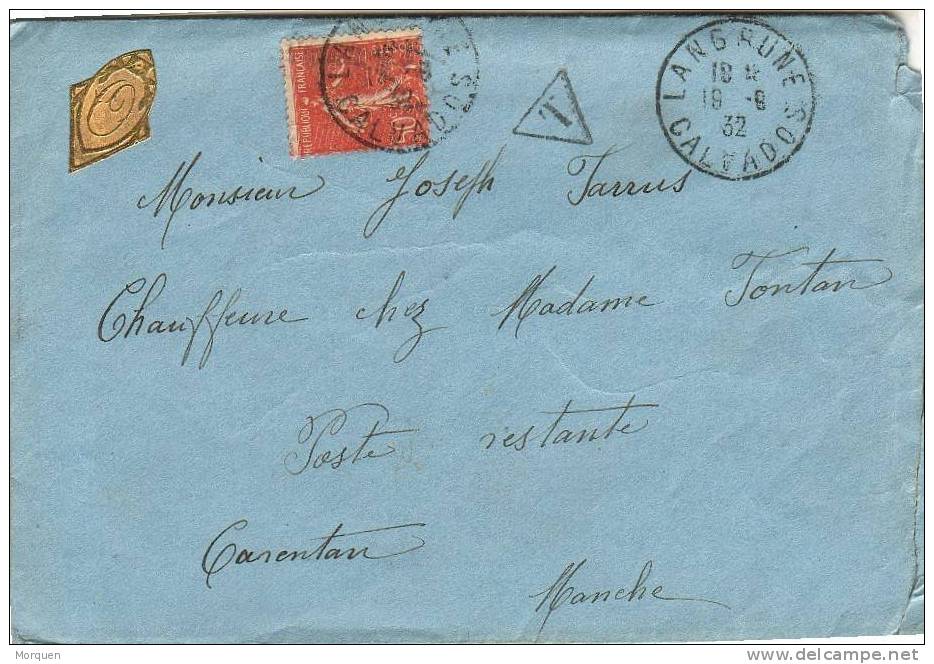 RÉPUBLIQUE FRANÇAISE
50
CALVADOS
T
LANGRUNE
18
19 - 8
32
CALVADOS
Monsieur Joseph Tarrus
Chauffeure chez Madame Tontan
Poste restante
Carentan
Manche
Morquen
delcampe.net